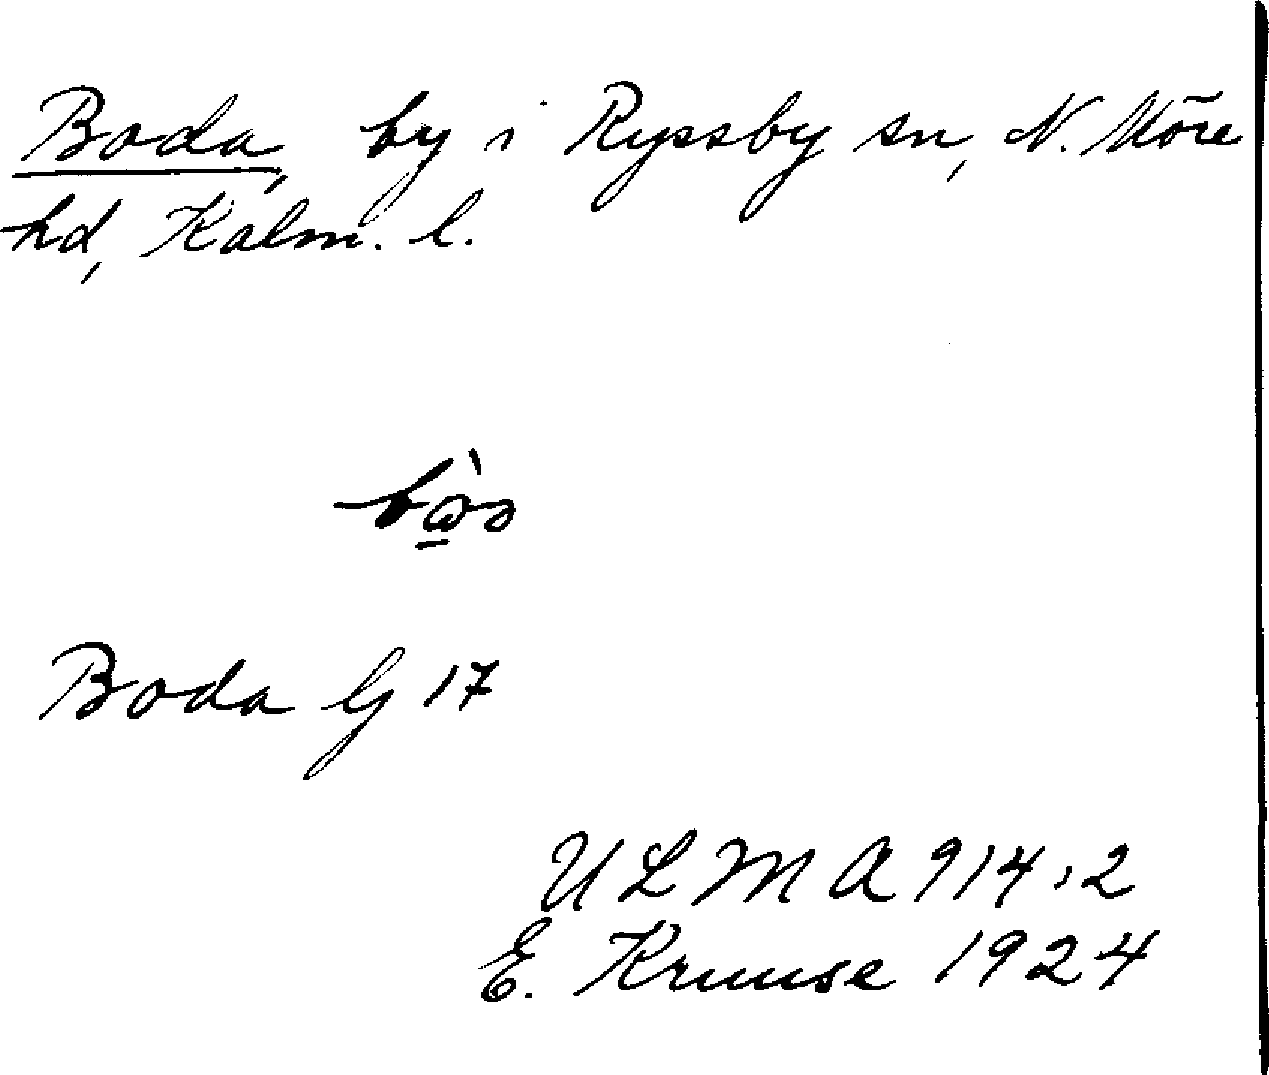 Boda, by i Ryssby sn, N. Möre
hd, Kalm. l.
Boda G 17
ULMA 914:2
E. Kruuse 1924